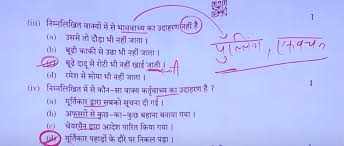 (iii) निम्नलिखित वाक्यों में से भाववाच्य का उदाहरण नहीं है 1
(a) उससे तो दौड़ा भी नहीं जाता ।
(b) बूढ़ी काकी से उठा भी नहीं जाता ।
(c) बूढ़े दादू से रोटी भी नहीं खाई जाती ।
(d) रमेश से सोया भी नहीं जाता ।
पुल्लिंग, एकवचन
(iv) निम्नलिखित में से कौन-सा वाक्य कर्तृवाच्य का उदाहरण है ? 1
(a) मूर्तिकार द्वारा सबको सूचना दी गई ।
(b) अफ़सरों से कुछ-का-कुछ बहाना बनाया गया ।
(c) चेयरमैन द्वारा आदेश पारित किया गया ।
(d) मूर्तिकार पहाड़ों के दौरे पर निकल पड़ा ।